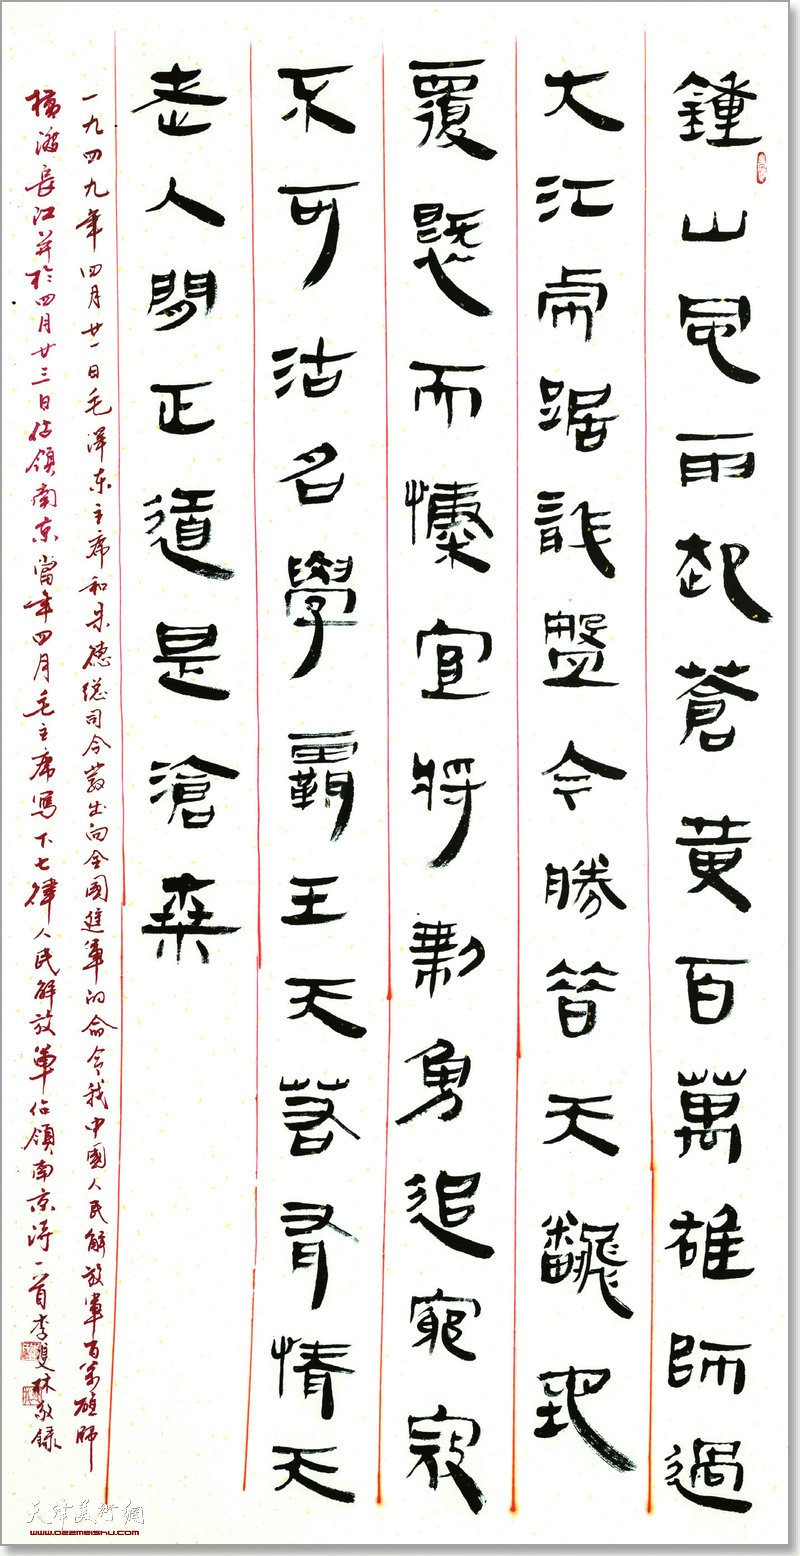 鍾山風雨起蒼黄百萬雄師過
大江虎踞龍盤今勝昔天翻地
覆慨而慷宜将剩勇追窮寇
不可沽名學霸王天若有情天
老人間正道是滄桑
一九四九年四月廿一日毛澤东主席和朱德總司令發出向全國進軍的命令我中國人民解放軍百萬雄師
横渡長江並於四月廿三日佔領南京當年四月毛主席寫下七律人民解放軍佔領南京詩一首李雙林敬録
天津美術網
www.022meishu.com